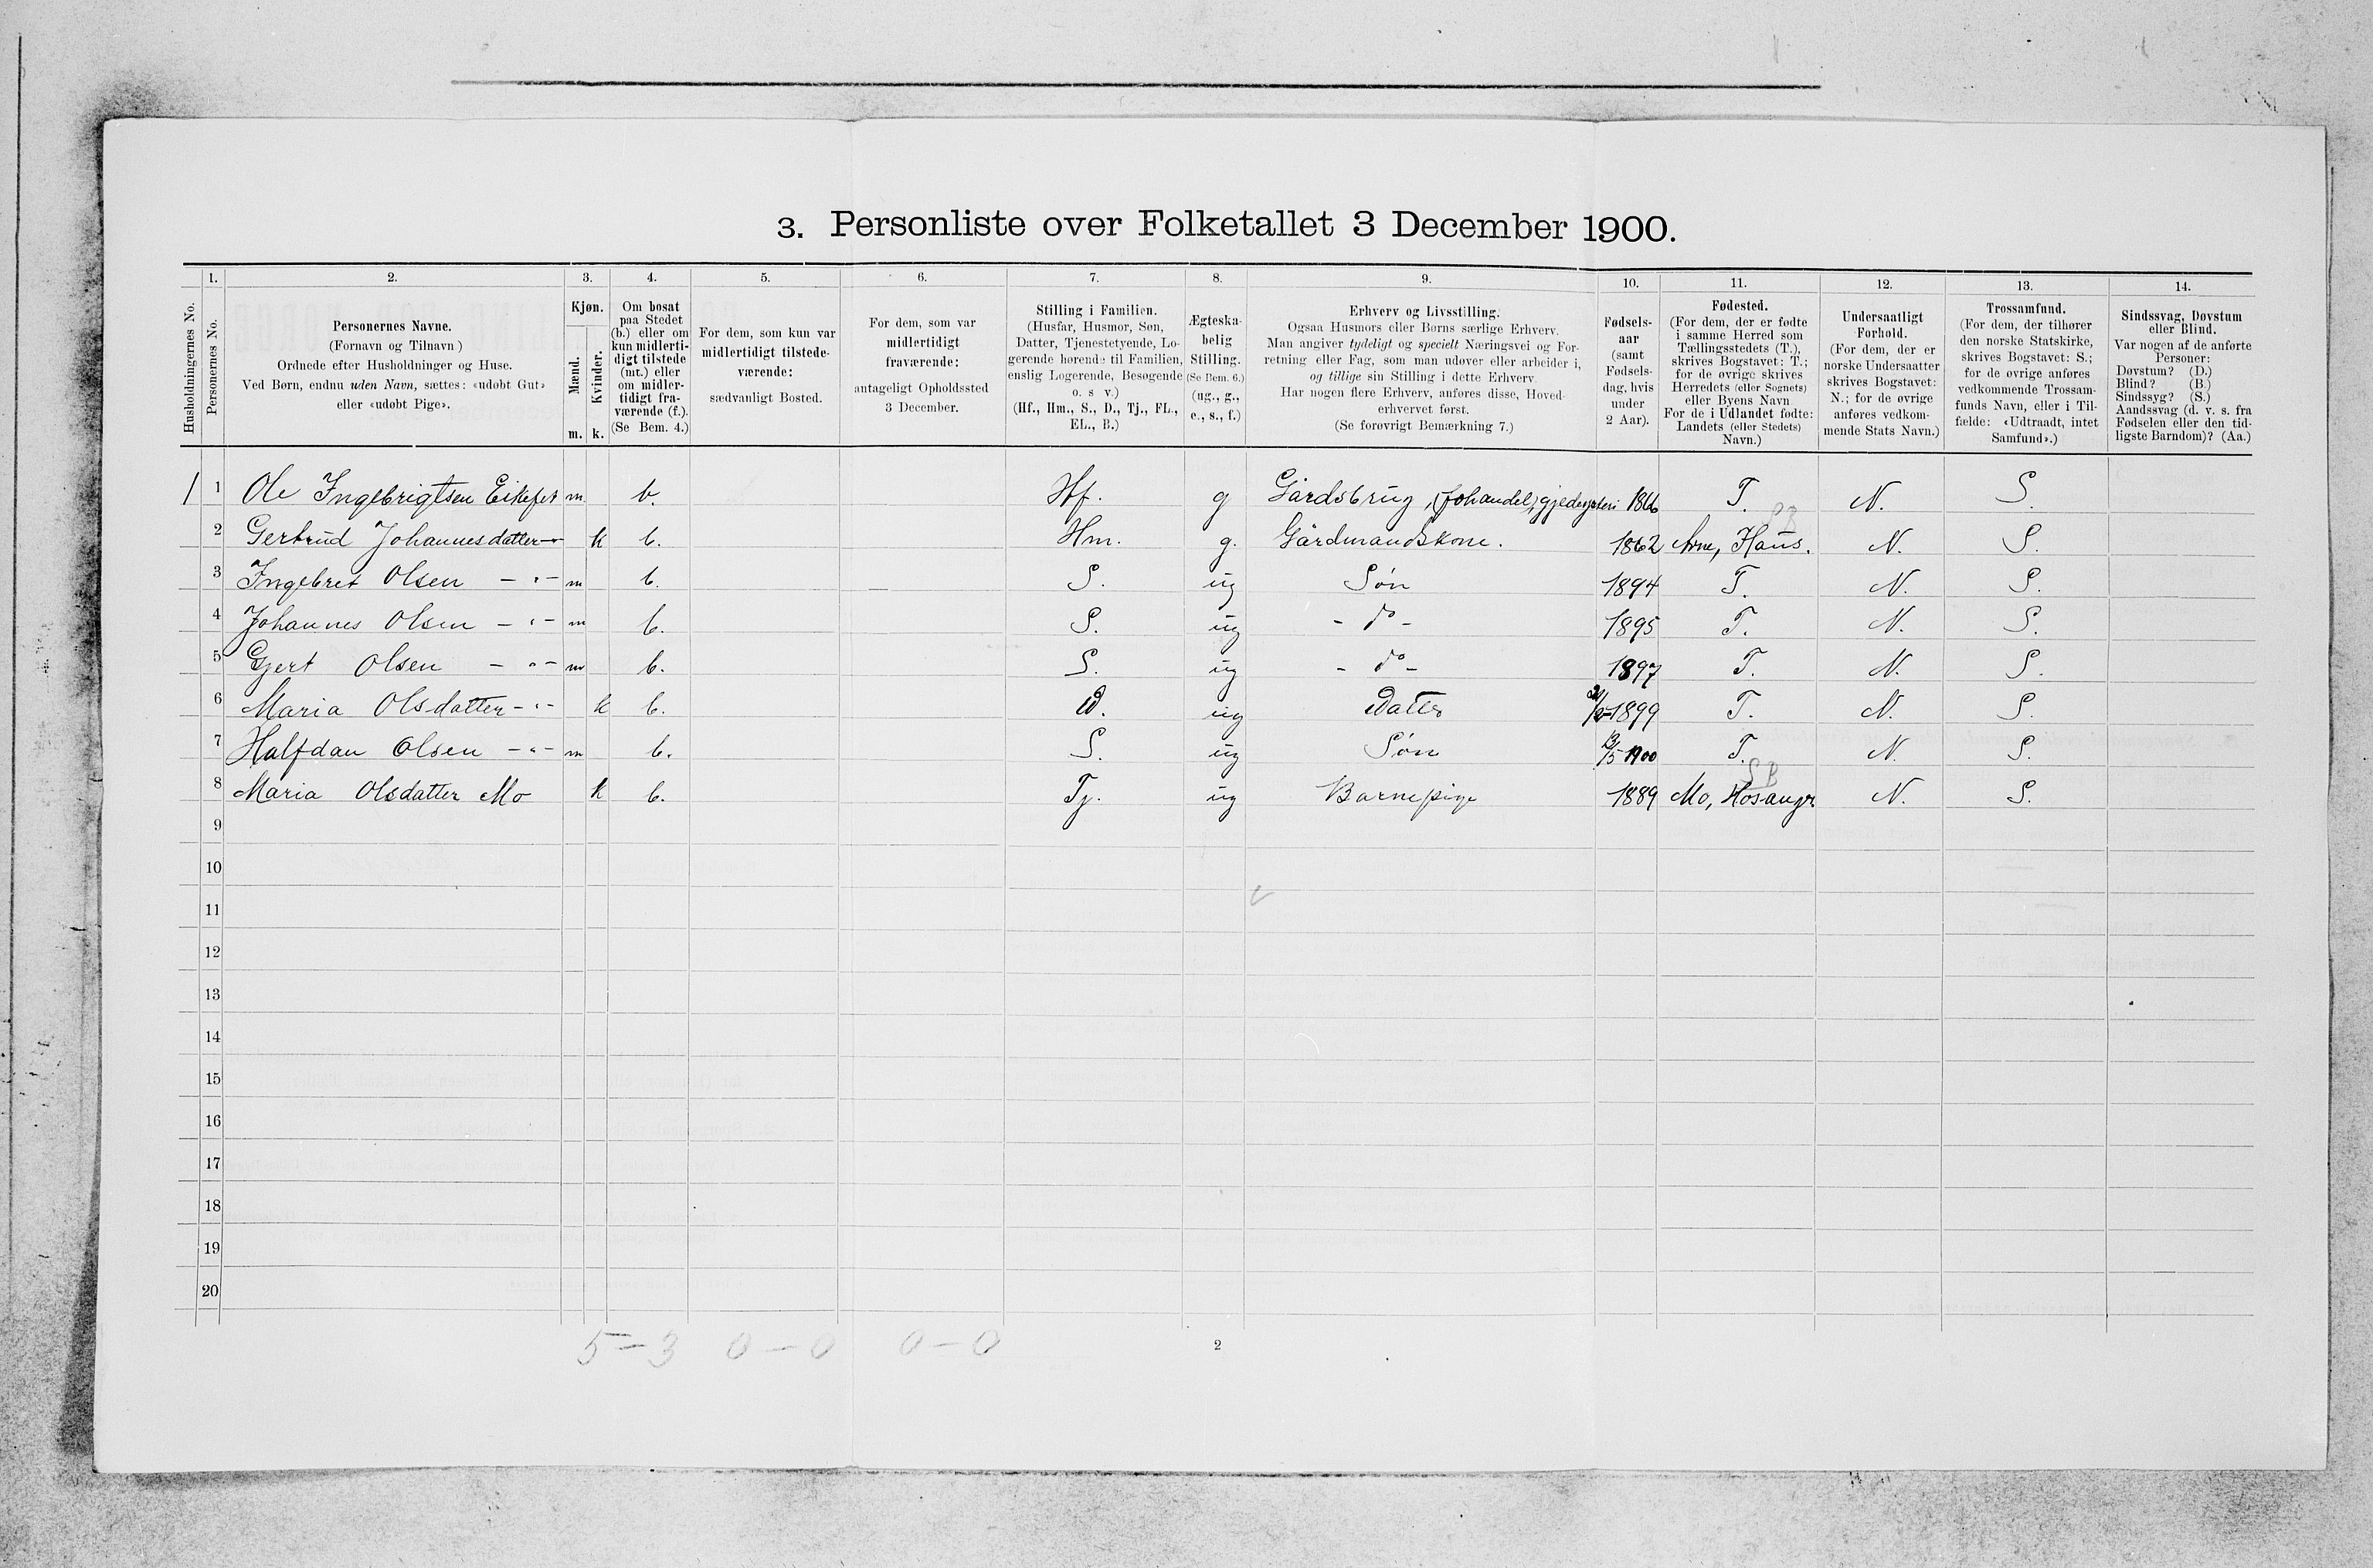 3. Personliste over Folketallet 3 December 1900.
1. 2. 3. 4. 5. 6. 7. 8. 9. 10. 11. 12. 13. 14.
Husholdningernes No.
Personernes No.
Personernes Navne.
(Fornavn og Tilnavn.)
Ordnede efter Husholdninger og Huse.
Ved Børn, endnu uden Navn, sættes: «udøbt Gut»
eller «udøbt Pige».
Kjøn.
Mænd.
Kvinder.
m. k.
Om bosat
paa Stedet
(b.) eller om
kun midlerti-
digt tilstede
(mt.) eller
om midler-
tidigt fra-
værende (f.).
(Se Bem. 4.)
For dem, som kun var
midlertidigt tilstede-
værende:
sædvanligt Bosted.
For dem, som var
midlertidigt
fraværende:
antageligt Opholdssted
3 December.
Stilling i Familien.
(Husfar, Husmor, Søn,
Datter, Tjenestetyende, Lo-
gerende hørende til Familien,
enslig Logerende, Besøgende
o. s v.)
(Hf., Hm., S., D., Tj., FL.,
EL., B.)
Ægteska-
belig
Stilling.
(Se Bem. 6.)
(ug., g.,
e., s., f.)
Erhverv og Livsstilling.
Ogsaa Husmors eller Børns særlige Erhverv.
Man angiver tydeligt og specielt Næringsvei og For-
retning eller Fag, som man udøver eller arbeider i,
og tillige sin Stilling i dette Erhverv.
Har nogen flere Erhverv, anføres disse, Hoved-
erhvervet først.
(Se forøvrigt Bemærkning 7.)
Fødsels-
aar
(samt
Fødsels-
dag, hvis
under
2 Aar).
Fødested.
(For dem, der er fødte
i samme Herred som
Tællingsstedets (T.),
skrives Bogstavet: T.;
for de øvrige skrives
Herredets (eller Sognets)
eller Byens Navn
For de i Udlandet fødte:
Landets (eller Stedets)
Navn.)
Undersaatligt
Forhold.
(For dem, der er
norske Undersaatter
skrives Bogstavet:
N.; for de øvrige
anføres vedkom-
mende Stats Navn.)
Trossamfund.
(For dem, der tilhører
den norske Statskirke,
skrives Bogstavet: S.;
for de øvrige anføres
vedkommende Trossam-
funds Navn, eller i Til-
fælde: «Udtraadt, intet
Samfund».)
Sindssvag, Døvstum
eller Blind.
Var nogen af de anførte
Personer:
Døvstum? (D.)
Blind? (B.)
Sindssyg? (S.)
Aandssvag (d. v. s. fra
Fødselen eller den tid-
ligste Barndom)? (Aa.)
1 1 Ole Ingebrigtsen Eikefet m. b. Hf. g Gårdsbrug, 1866 T. N. S.
2 Gertrud Johannesdatter -"- k b. Hm. g. Gårdmandskone. 1862 Arne, Haus. N. S.
3 Ingebret Olsen -"- m b. S. ug Søn 1894 T. N. S.
4 Johannes Olsen -"- m b. S. ug - do - 1895 T. N. S.
5 Gjert Olsen -"- m b. S. ug - do - 1897 T. N. S.
6 Maria Olsdatter -"- k b. D. ug Datter 1899 T. N. S.
7 Halfdan Olsen -"- m b. S. ug Søn 13/5 1900 T. N. S.
8 Maria Olsdatter Mo k b. Tj. ug Barnepige 1889 Mo, Hosangr N. S.
9
10
11
12
13
14
15
16
17
18
19
20
5-3 0-0 0-0
2